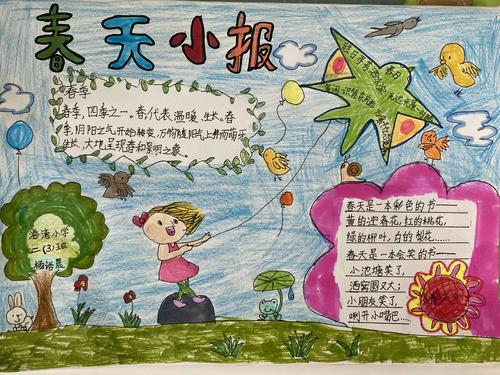 春天小报
春季
春季，四季之一。春，代表温暖、生长。春
季，阴阳之气开始转变，万物随阳气上升而萌牙
生长，大地呈现春和景明之象。
春日
春天是一本彩色的书——
黄的迎春花，红的桃花，
绿的柳叶，白的梨花……
春天是一本会笑的书——
小池塘笑了，
酒窝圆又大；
小朋友笑了，
咧开小嘴吧……
小学
二(3)班